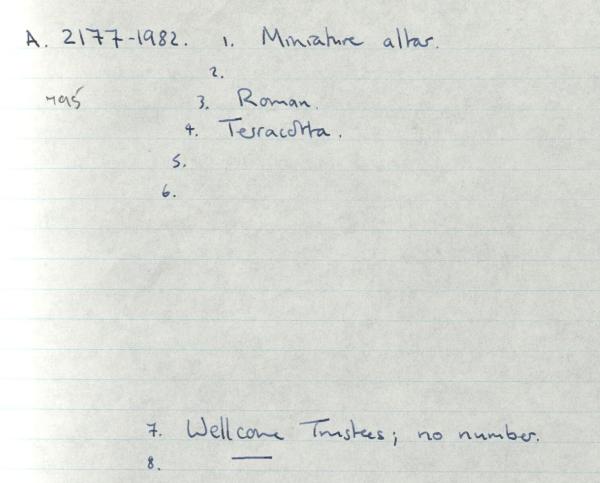 A. 2177-1982. 1. Miniature altar.
2.
3. Roman.
4. Terracotta.
5.
6.
7. Wellcome Trustees; no number.
8.